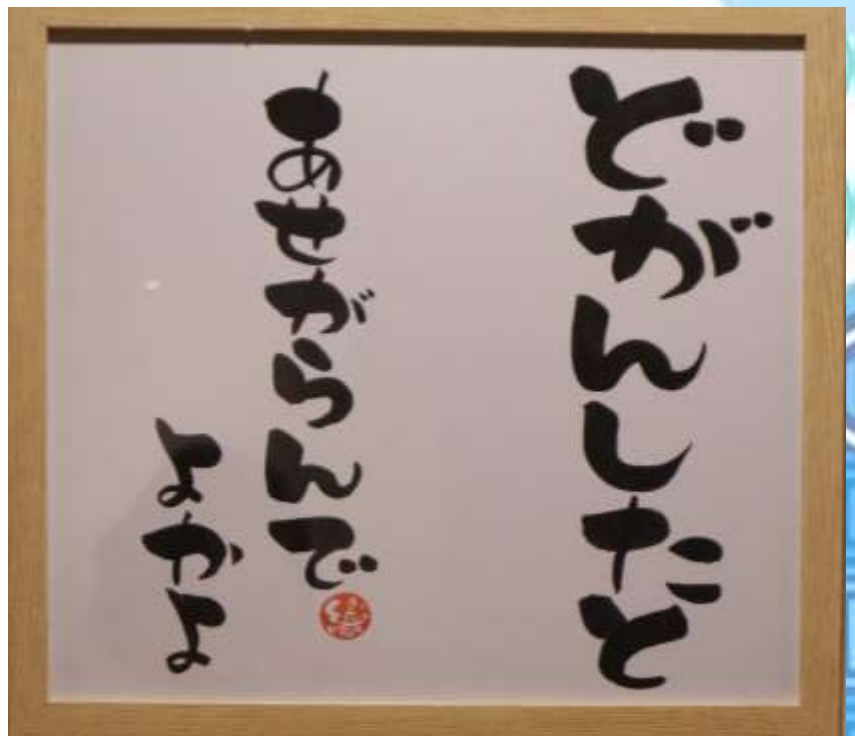 どがんしたと
あせがらんで
よかよ